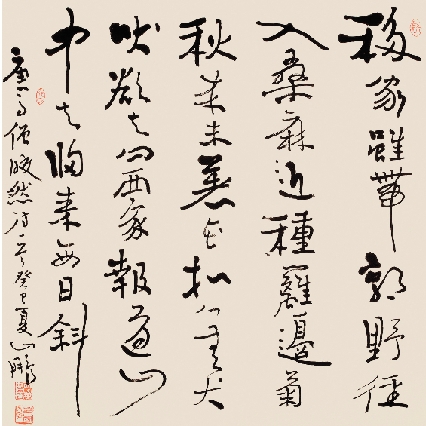 移家雖帶郭野徑
入桑麻近種籬邊菊
秋來未著花扣門無犬
吠欲去問西家報道山
中去歸來每日斜
唐高僧皎然詩一首癸巳夏鵬